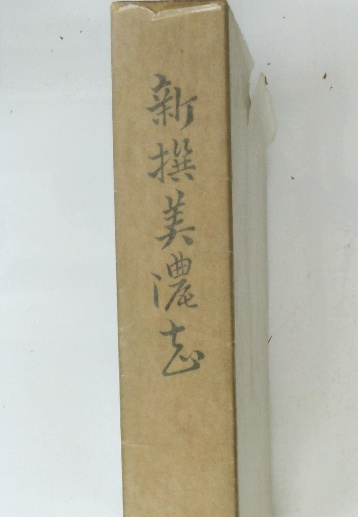 新撰美濃志